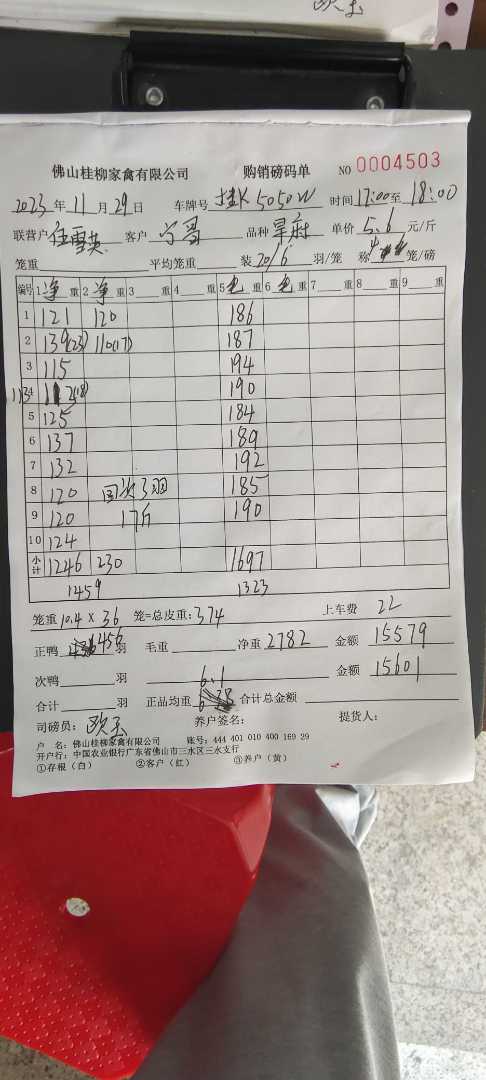 佛山桂柳家禽有限公司 购销磅码单 NO 0004503
2023 年 11 月 29 日 车牌号 桂K 5050W 时间 17:00 至 18:00
联营户 客户 宁哥 品种 单价 5.6 元/斤
笼重 平均笼重 装 20/6 羽/笼 称 笼/磅
编号 1 净 重 2 净 重 3 重 4 重 5 毛 重 6 毛 重 7 重 8 重 9 重
1 121 120 186
2 139(23) 110(17) 187
3 115 194
4 2(18) 190
5 125 184
6 137 189
7 132 192
8 120 回次3羽 185
9 120 17斤 190
10 124
小计 1246 230 1697
1459 1323
笼重 10.4 × 36 笼=总皮重: 374 上车费 22
正鸭 456 羽 毛重 净重 2782 金额 15579
次鸭 羽 6.1 金额 15601
合计 羽 正品均重 合计总金额
司磅员: 欧玉 养户签名: 提货人:
户 名: 佛山桂柳家禽有限公司 账号: 444 401 010 400 169 29
开户行: 中国农业银行广东省佛山市三水区三水支行
①存根（白） ②客户（红） ③养户（黄）